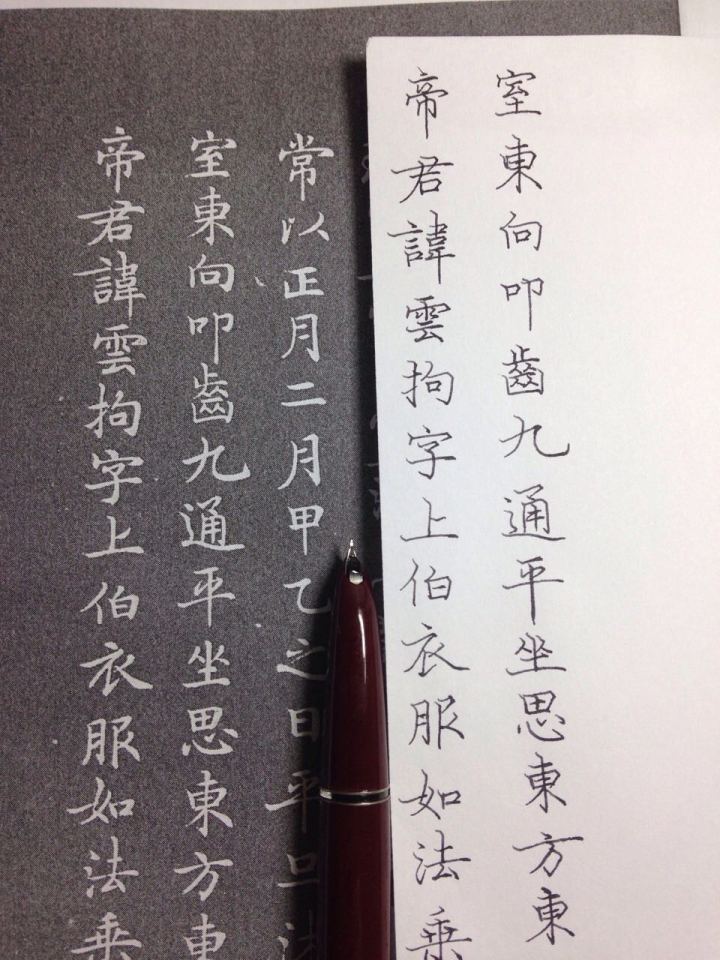 室東向叩齒九通平坐思東方東
帝君諱雲拘字上伯衣服如法乘
常以正月二月甲乙之日平旦
室東向叩齒九通平坐思東方東
帝君諱雲拘字上伯衣服如法乘